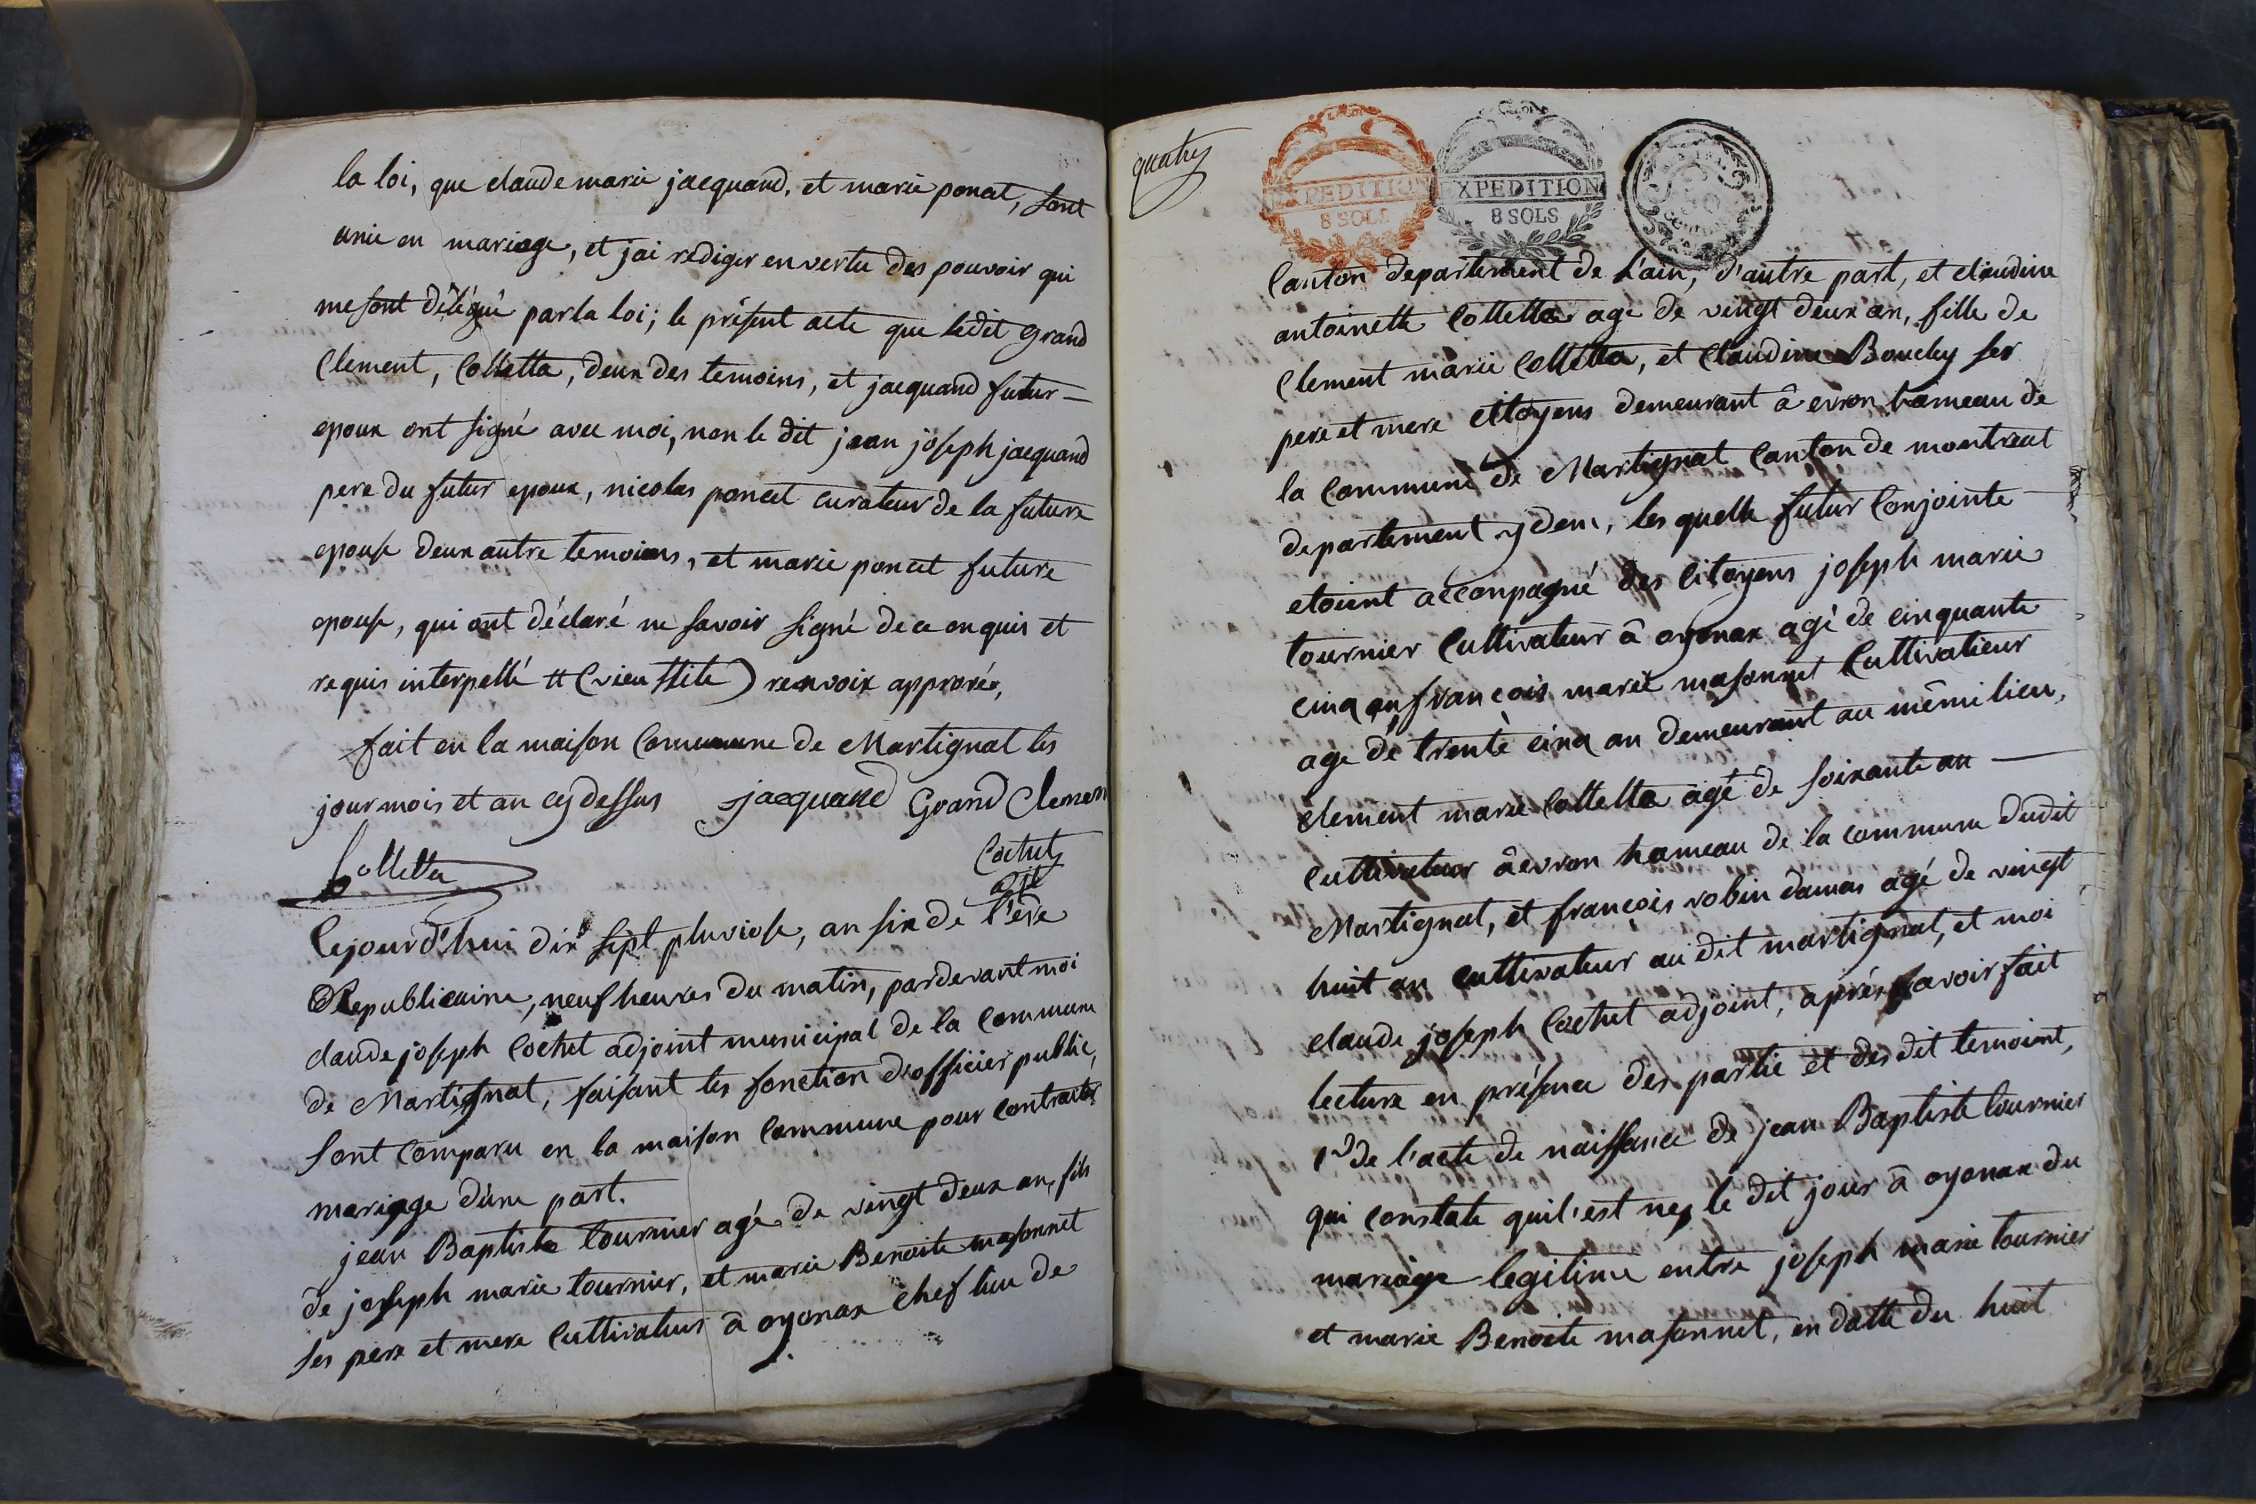 la loi, que claude marie jacquand, et marie poncet, sont
unie en mariage, et jai rediger en vertu des pouvoir qui
me sont délégué par la loi; le présent acte que ledit grand
Clement, Colletta, deux des temoins, et jacquand futur —
epoux ont signé avec moi, non le dit jean joseph jacquand
pere du futur epoux, nicolas poncet curateur de la future
epouse deux autre temoins, et marie poncet future
epouse, qui ont déclaré ne savoir signé de ce enquis et
requis interpellé # (vieu ) renvoix approvée,
fait en la maison Commune de Martignat les
jour mois et an cy dessus jacquand Grand Clemen
Cochet
Colletta
adjt
Cejourd'hui dix sept pluviose, an six de l'ere
Republicaine, neuf heures du matin, pardevant moi
claude joseph Cochet adjoint municipal de la Commune
de Martignat, faisant les fonction d'officier public,
sont Comparu en la maison Commune pour Contracter
mariage d'une part.
jean Baptiste tournier agé de vingt deux an, fils
de joseph marie tournier, et marie Benoite masonnet
ses pere et mere Cultivateurs à oyonax chef lieu de
quatre
EXPEDITION
8 SOLS
EXPEDITION
8 SOLS
Canton departement de L'ain, d'autre part, et claudine
antoinette Colletta agé de vingt deux an, fille de
Clement marie Colletta, et Claudine Bouchy ses
pere et mere citoyens demeurant à evron hameau de
la Commune de Martignat Canton de montreal
departement ydem, les quelle futur Conjointe
etoient accompagné des Citoyens joseph marie
tournier Cultivateur à oyonax agé de cinquante
cinq an, francois marie masonnet Cultivatieur
age de trente cinq an demeurant au même lieu,
clement marie Colletta agé de soixante an —
Cultivateur à evron hameau de la commune dudit
Martignat, et françois robin damas agé de vingt
huit an cultivateur au dit martignat, et moi
claude joseph Cochet adjoint, après avoir fait
lecture en présence des partie et des dit temoint,
1º de l'acte de naissance de jean Baptiste tournier
qui constate quil'est ney le dit jour à oyonax du
mariage legitime entre joseph marie tournier
et marie Benoite masonnet, en datte du huit